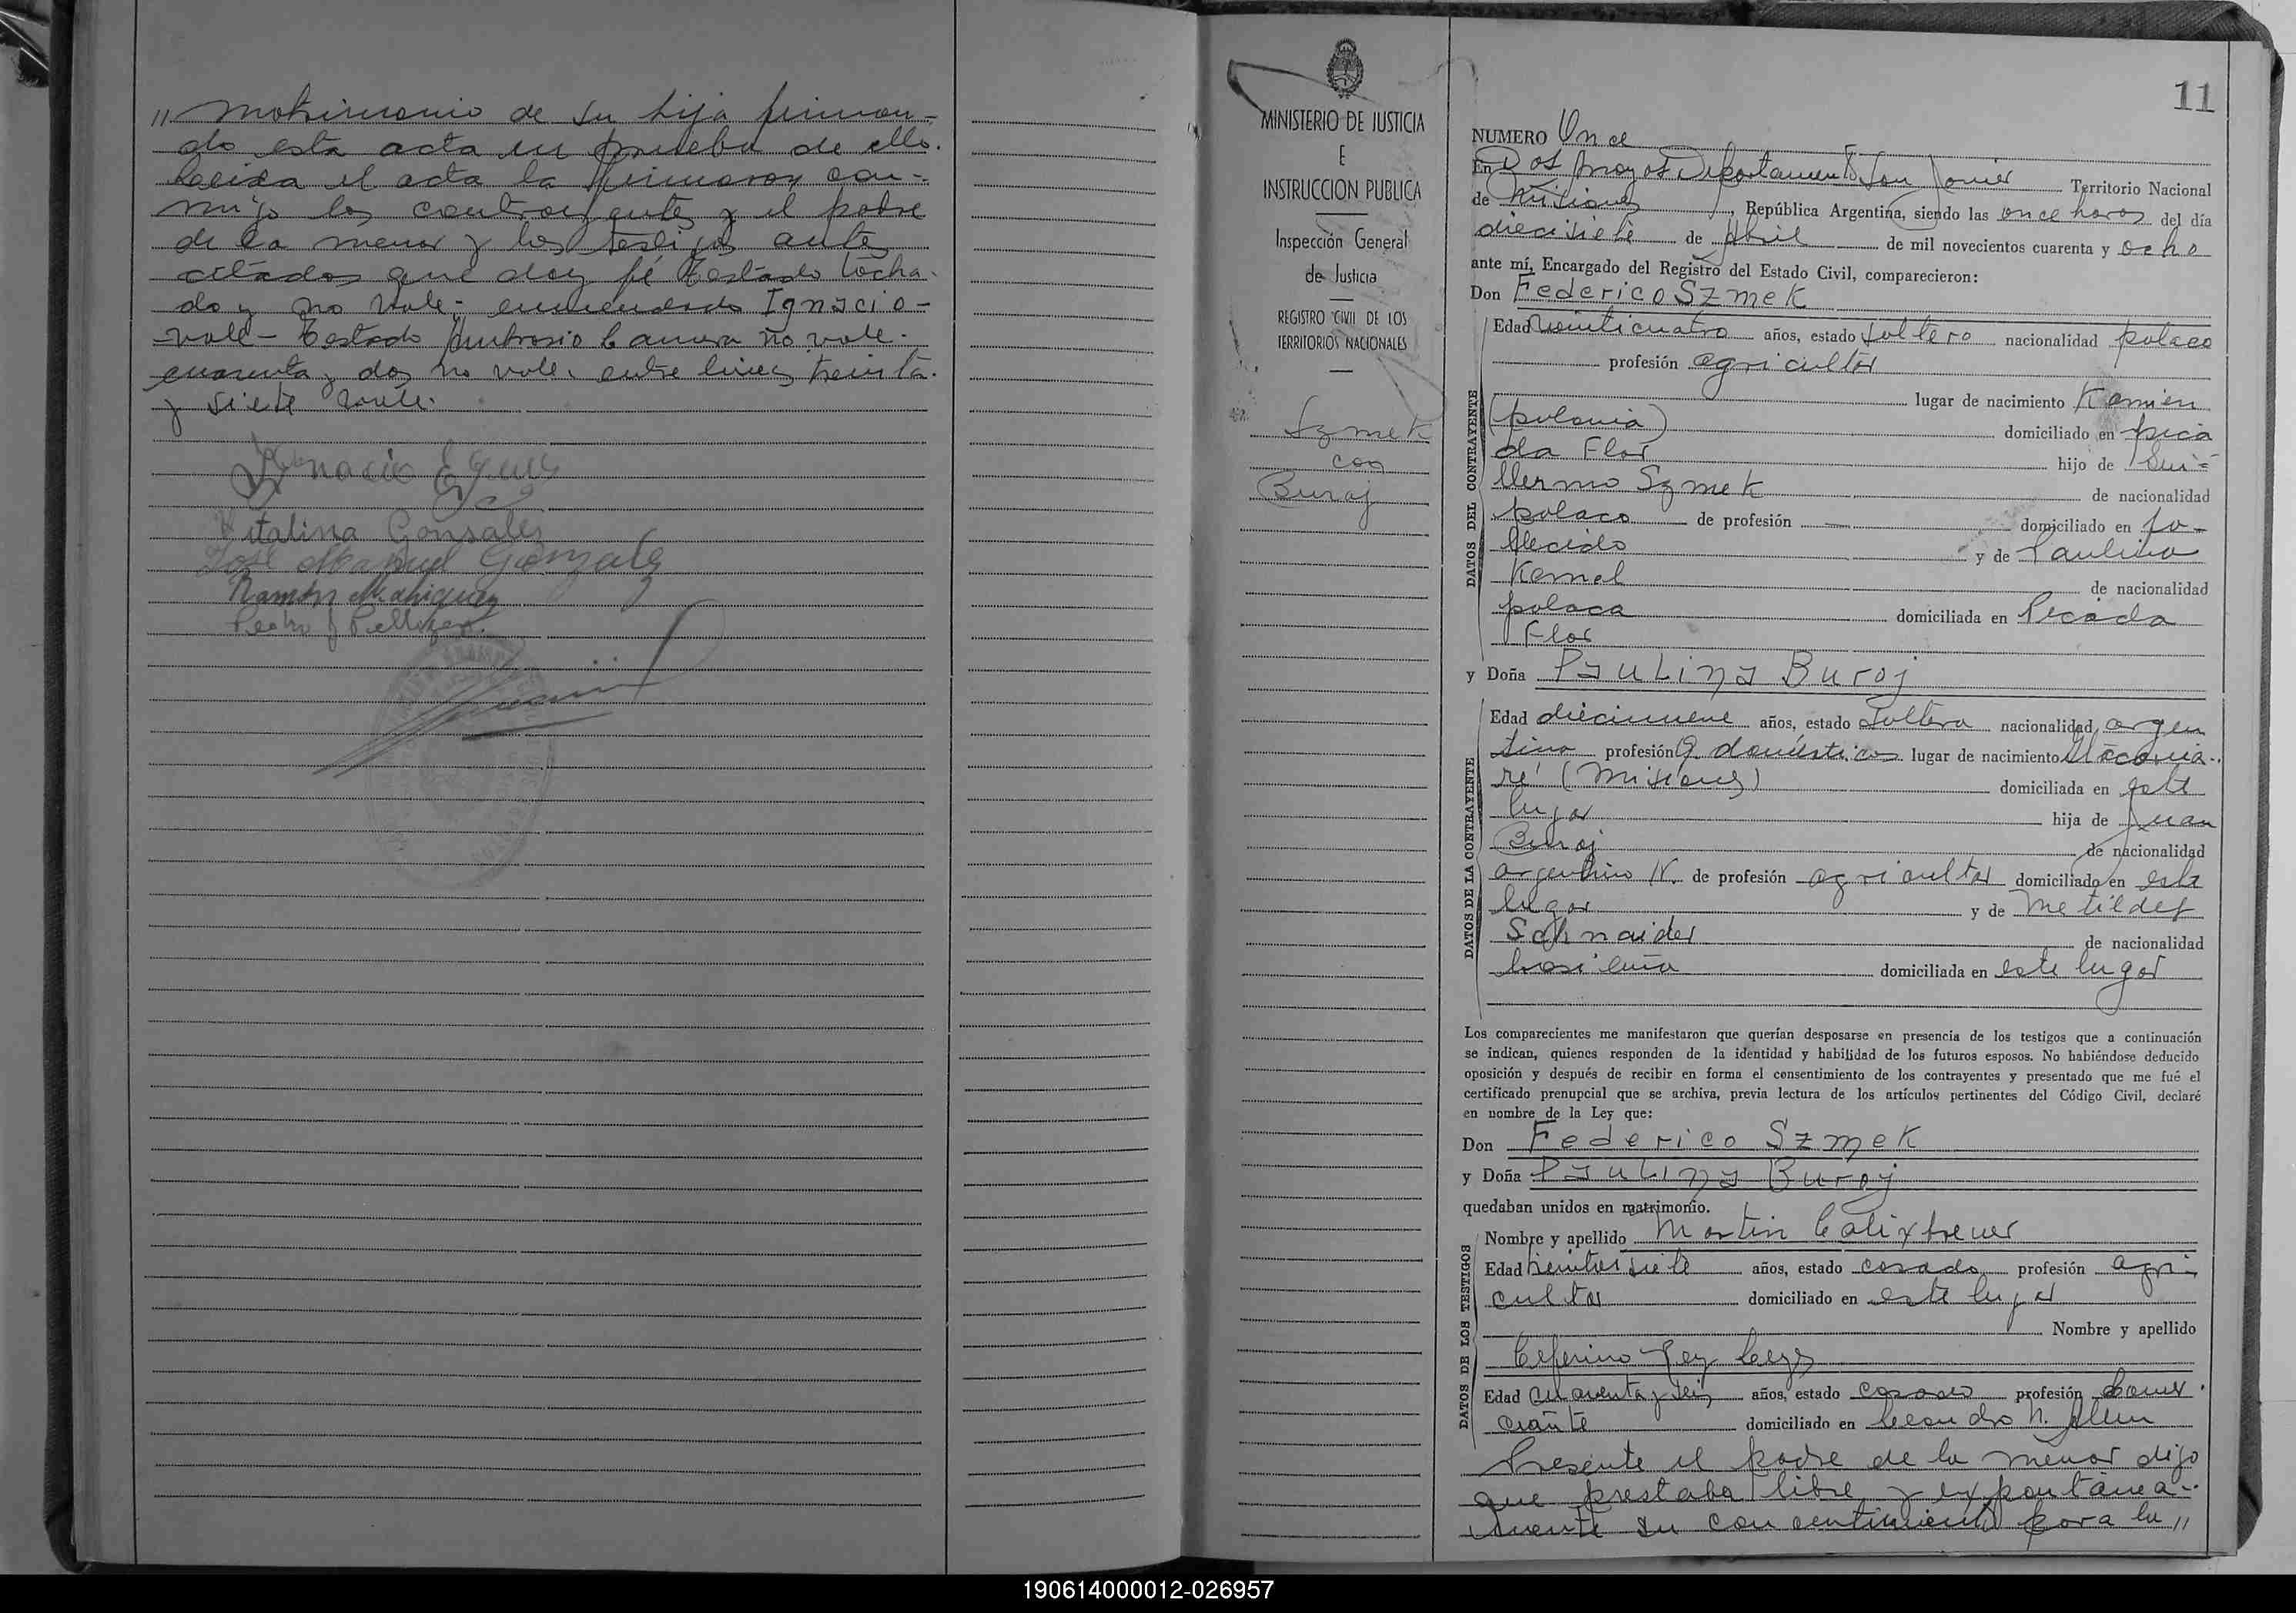 " matrimonio de su hija firman-
do esta acta en prueba de ello.
Leida el acta la firmaron con-
migo los contrayentes y el padre
de la menor y los testigos antes
citados que doy fé Testado tocha-
do y no vale- enmendado Ignacio-
vale- Testado Ambrosio no vale.
cuarenta y dos no vale. entre lineas treinta.
y siete vale.
Ignacio
Vitalina Gonsalez
José Gonzalez
Ramón
Pedro
MINISTERIO DE JUSTICIA
E
INSTRUCCION PUBLICA
Inspección General
de Justicia
REGISTRO CIVIL DE LOS
TERRITORIOS NACIONALES
Szmek
con
Buraj
11
NUMERO Once
En Dos Arroyos Departamento San Javier Territorio Nacional
de Misiones, República Argentina, siendo las once horas del día
diecisiete de Abril de mil novecientos cuarenta y ocho
ante mí, Encargado del Registro del Estado Civil, comparecieron:
Don Federico Szmek
DATOS DEL CONTRAYENTE
Edad veinticuatro años, estado soltero nacionalidad polaco
profesión agricultor
lugar de nacimiento Kamien
(polonia) domiciliado en pica
da Flor hijo de Gui=
llermo Szmek de nacionalidad
polaco de profesión — domiciliado en fa-
llecido y de Paulina
Kemel de nacionalidad
polaca domiciliada en Picada
Flor
y Doña Paulina Buraj
DATOS DE LA CONTRAYENTE
Edad diecinueve años, estado soltera nacionalidad argen
tina profesión Q. domésticos lugar de nacimiento Mocona-
ré (Misiones) domiciliada en este
lugar hija de Juan
Buraj de nacionalidad
argentino N. de profesión agricultor domiciliado en este
lugar y de Metildes
Schnaider de nacionalidad
brasileña domiciliada en este lugar
Los comparecientes me manifestaron que querían desposarse en presencia de los testigos que a continuación
se indican, quienes responden de la identidad y habilidad de los futuros esposos. No habiéndose deducido
oposición y después de recibir en forma el consentimiento de los contrayentes y presentado que me fué el
certificado prenupcial que se archiva, previa lectura de los artículos pertinentes del Código Civil, declaré
en nombre de la Ley que:
Don Federico Szmek
y Doña Paulina Buraj
quedaban unidos en matrimonio.
DATOS DE LOS TESTIGOS
Nombre y apellido Martin
Edad treintaisiete años, estado casado profesión agri-
cultor domiciliado en este lugar
Nombre y apellido
Ceferino
Edad cuarenta y seis años, estado casado profesión comer.
ciante domiciliado en Leandro N. Alem
Presente el padre de la menor dijo
que prestaba libre y expontánea-
mente su consentimiento para la "
190614000012-026957